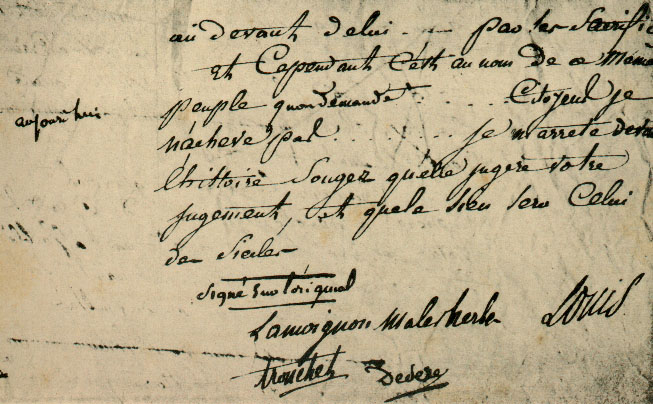 au devant de lui . _ . par les Sacrific
Et Cependant C'est au nom de ce Meme
aujourd'hui
peuple qu'on demande . . . . . Citoyens je
n'acheve pas . . . . . . je m'arrete devan
l'histoire Songez qu'elle jugera votre
jugement, et que le sien sera Celui
des Siecles
Signé Sur l'original
Lamoignon Malesherbe Louis
tronchet Deseze